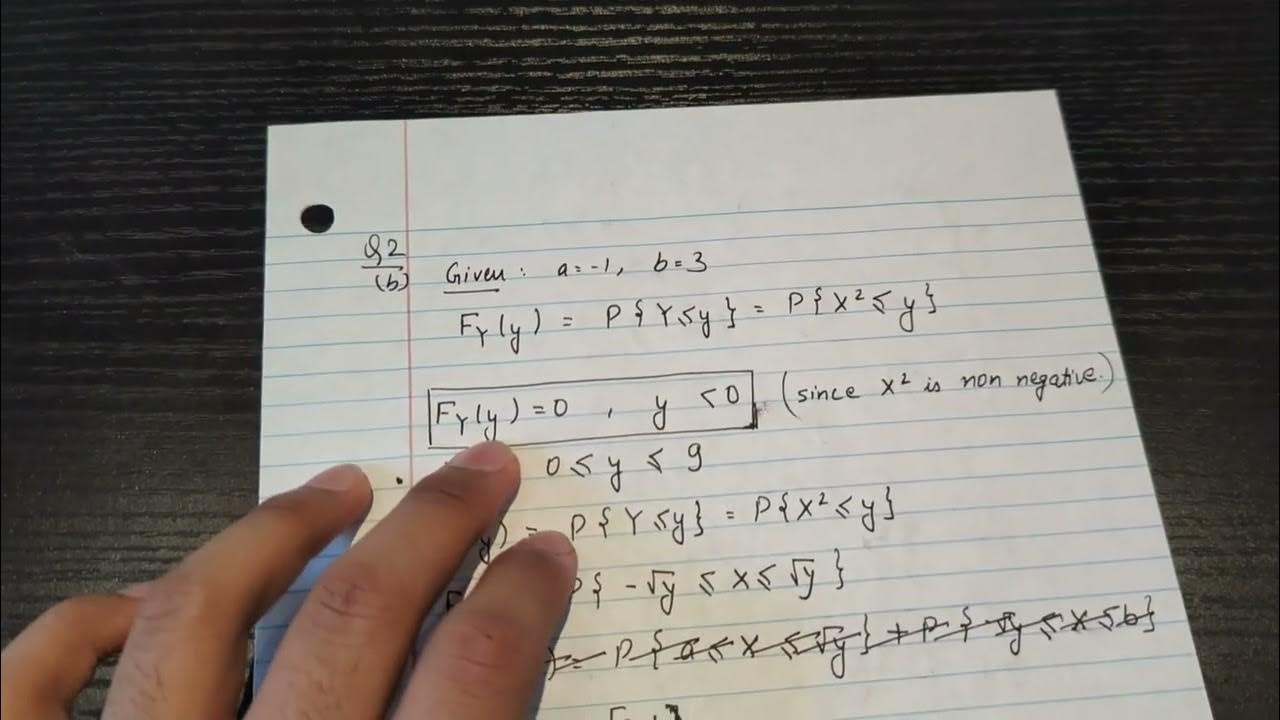 Q2
(b)
Given : a = -1, b = 3
F_Y(y) = P{Y ≤ y} = P{X² ≤ y}
F_Y(y) = 0 , y < 0 (since X² is non negative.)
0 ≤ y ≤ 9
y) = P{Y ≤ y} = P{X² ≤ y}
P{-√y ≤ X ≤ √y}
= P{a ≤ X ≤ √y} + P{√y ≤ X ≤ b}